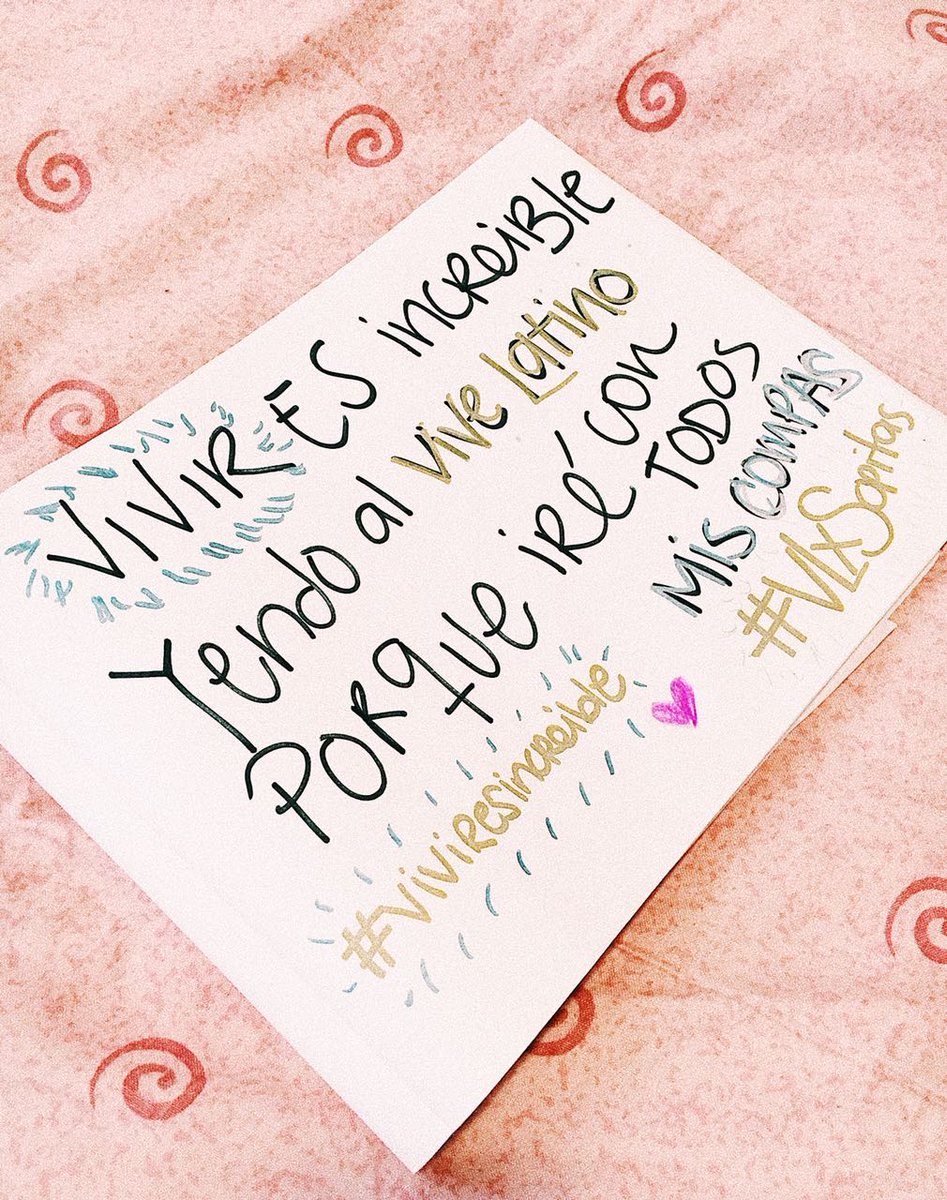 VIVIR ES increible
Yendo al Vive Latino
PORQue iRé con
TODOS
Mis comPAS
#VLxSopitas
#ViviResincreible